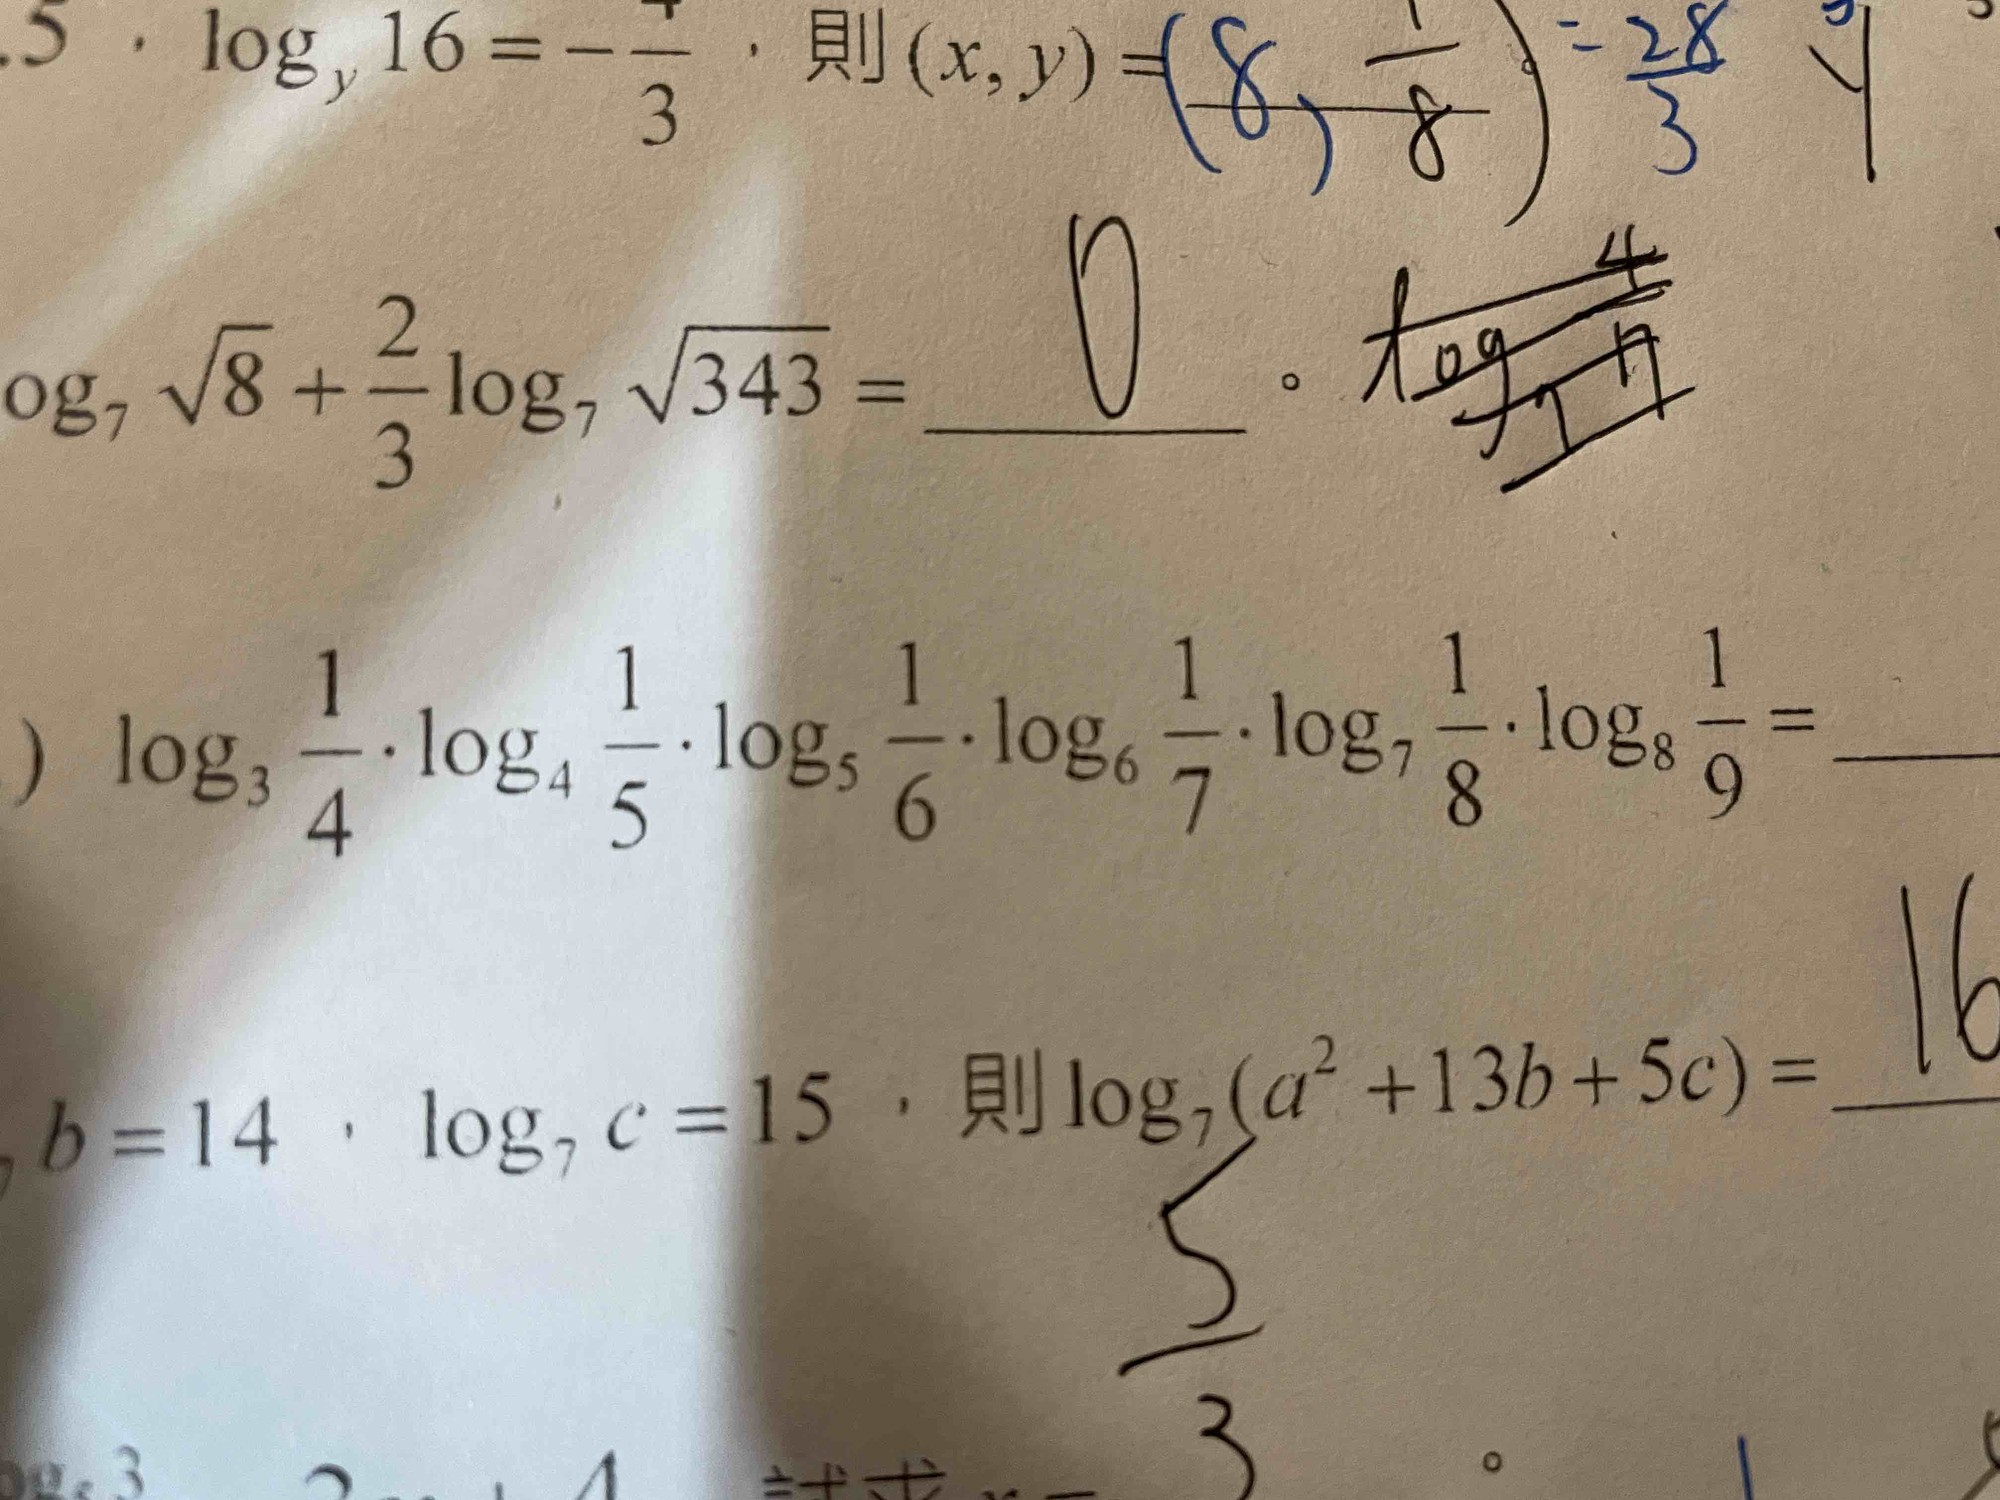 .5，log_y 16 = -4/3，則(x, y) = (8, 1/8)。= 28/3
og₇ √8 + 2/3 log₇ √343 = 0。
) log₃ 1/4 · log₄ 1/5 · log₅ 1/6 · log₆ 1/7 · log₇ 1/8 · log₈ 1/9 =
₇ b = 14，log₇ c = 15，則 log₇(a² + 13b + 5c) = 16
5/3
。